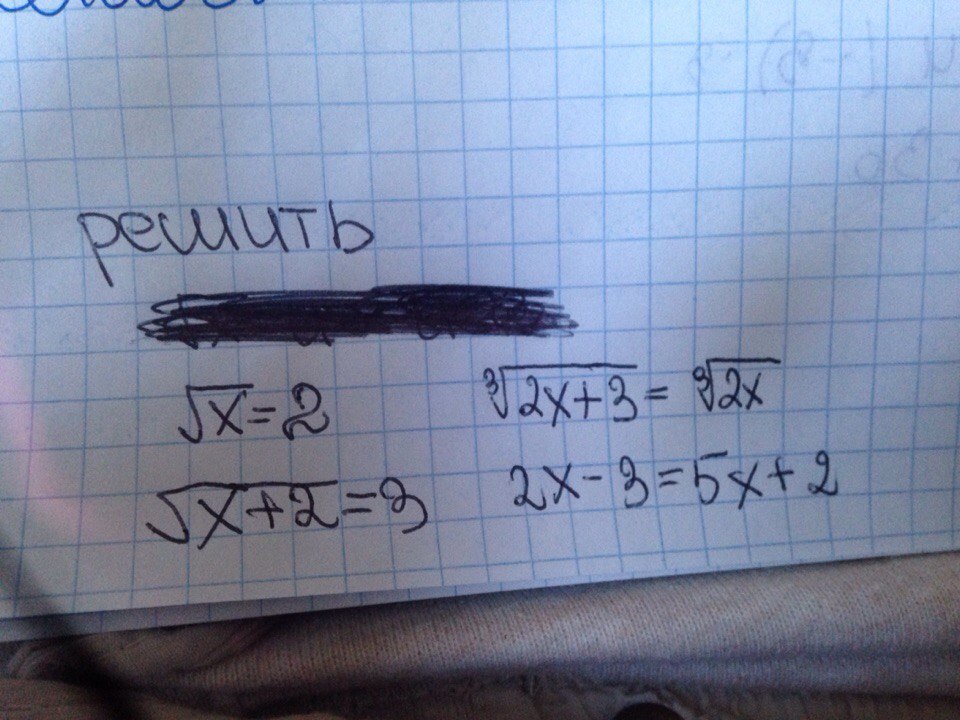 решить
√x = 2
∛2x+3 = ∛2x
√x+2 = 3
2x - 3 = 5x + 2